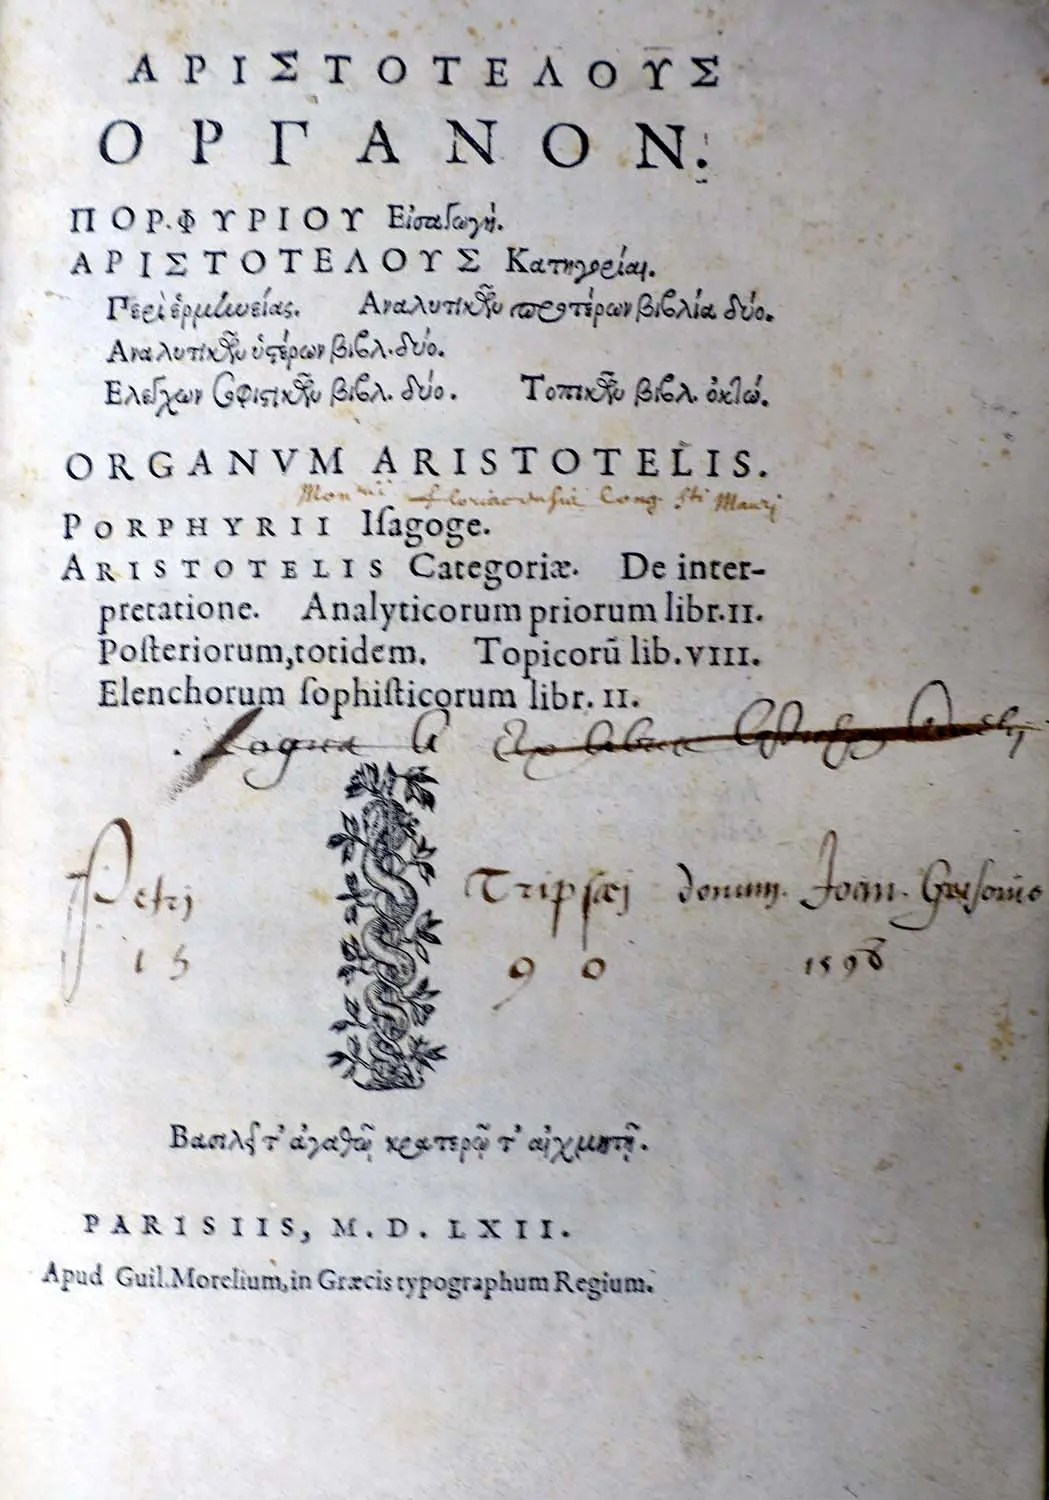 ΑΡΙΣΤΟΤΕΛΟΥΣ
ΟΡΓΑΝΟΝ.
ΠΟΡΦΥΡΙΟΥ Εἰσαγωγή.
ΑΡΙΣΤΟΤΕΛΟΥΣ Κατηγορίαι.
Περὶ ἑρμηνείας. Αναλυτικῶν προτέρων βιβλία δύο.
Αναλυτικῶν ὑστέρων βιβλ. δύο.
Ελέγχων σοφιστικῶν βιβλ. δύο. Τοπικῶν βιβλ. ὀκτώ.
ORGANVM ARISTOTELIS.
Monrii floriacensis Cong. Sti Mauri
PORPHYRII Iſagoge.
ARISTOTELIS Categoriæ. De inter-
pretatione. Analyticorum priorum libr. II.
Poſteriorum, totidem. Topicorū lib. VIII.
Elenchorum ſophiſticorum libr. II.
Petri Tripſæi donum. Joan.
1590 1598
Βασιλεῖ τ' ἀγαθῷ κρατερῷ τ' αἰχμητῇ.
PARISIIS, M. D. LXII.
Apud Guil. Morelium, in Græcis typographum Regium.